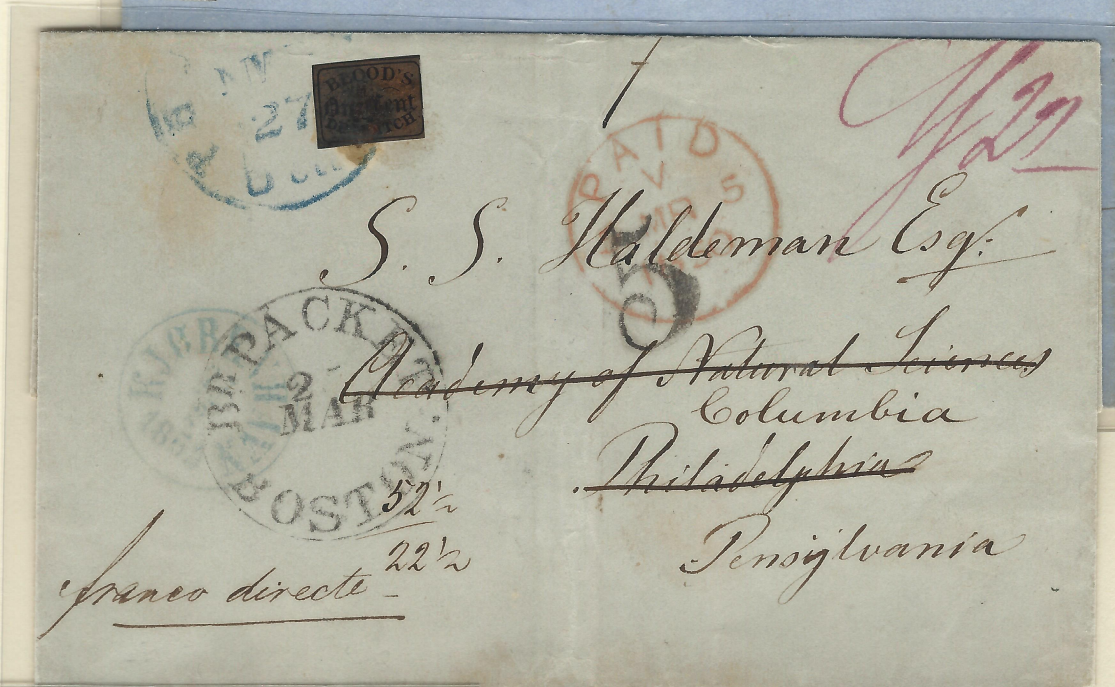 27
BLOOD'S
One Cent
DESPATCH
PAID
V
MR 5
S. S. Haldeman Esqr.
5
BR PACKET
2
MAR
BOSTON.
Academy of Natural Sciences
Columbia
Philadelphia
Pensylvania
52½
22½
franco directe